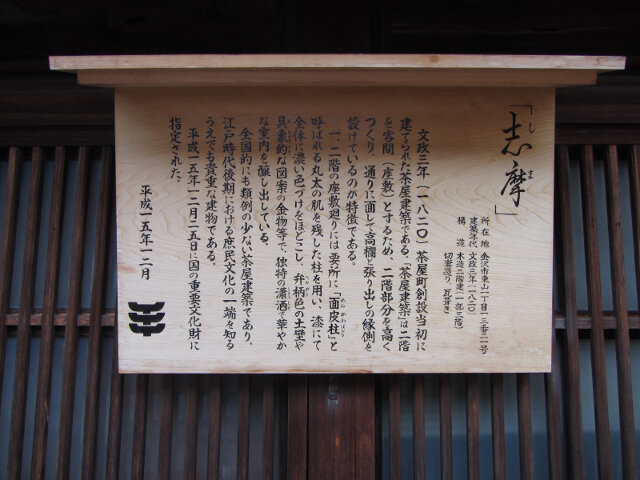 「志摩」
しま
所在地 金沢市東山一丁目一三番二一号
建築年代 文政三年(一八二〇)
構造 木造二階建(一部三階)
切妻造り 瓦葺き
文政三年(一八二〇)茶屋町創設当初に
建てられた茶屋建築である。「茶屋建築」は二階
を客間(座敷)とするため、二階部分を高く
つくり、通りに面して高欄と張り出しの縁側を
設けているのが特徴である。
一、二階の座敷廻りには要所に「面皮柱」と
めんかわはしら
呼ばれる丸太の肌を残した柱を用い、漆にて
全体に濃い色づけをほどこし、弁柄色の土壁や
具象的な図案の金物等で、独特の瀟洒で華やか
な室内を醸し出している。
全国的にも類例の少ない茶屋建築であり、
江戸時代後期における庶民文化の一端を知る
うえでも貴重な建物である。
平成一五年一二月二五日に国の重要文化財に
指定された。
平成一五年一二月